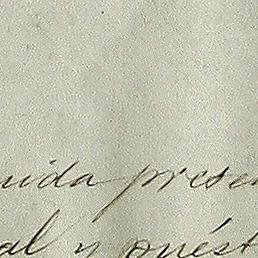 uida presen
al y onést